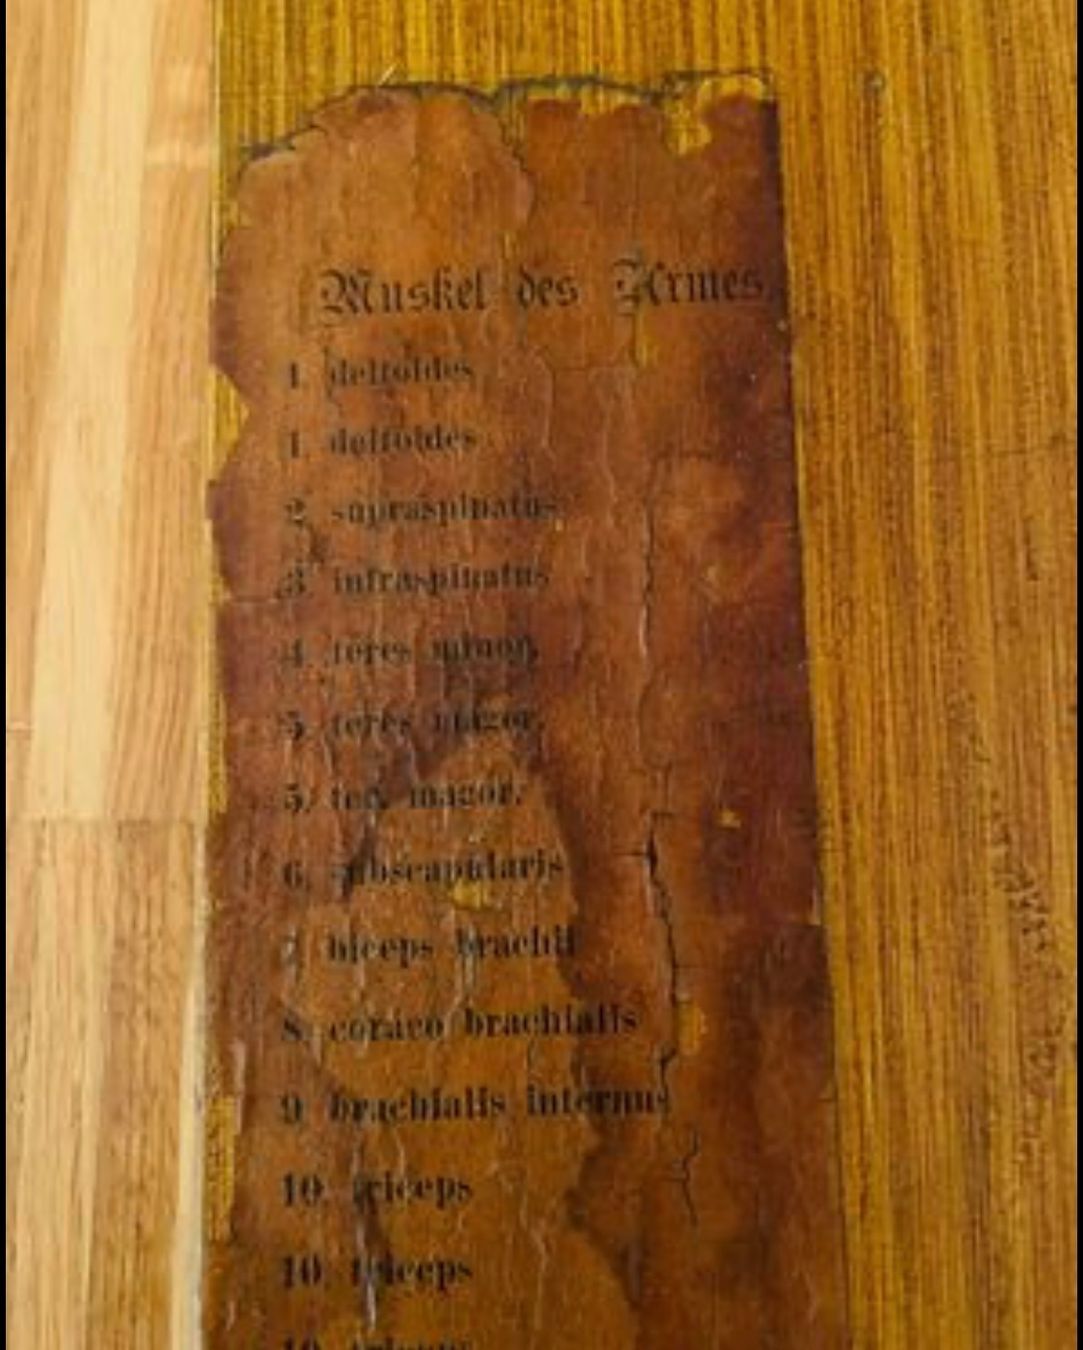 Muskel des Armes.
1. deltoides
1. deltoides
2. supraspinatus
3. infraspinatus
4. teres minor.
5. teres magor.
5. ter. magor.
6. subscapularis
7. biceps brachii
8. coraco brachialis
9. brachialis internus
10. triceps
10. triceps
10. triceps